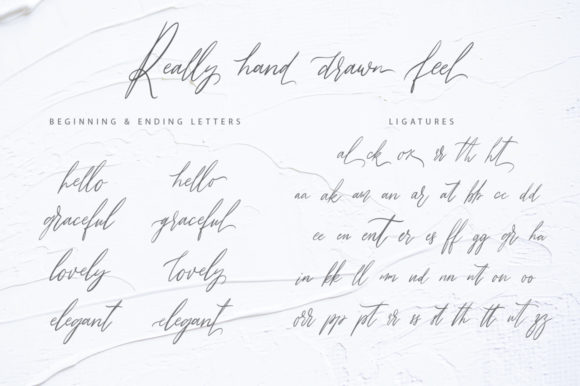 Really hand drawn feel
BEGINNING & ENDING LETTERS
hello hello
graceful graceful
lovely lovely
elegant elegant
LIGATURES
al ck ox rr th ht
aa ak am an ar at bb cc dd
ee en ent er es ff gg gr ha
in kk ll mn nd nn nt on oo
orr pp pt rr ss st th tt ut zz